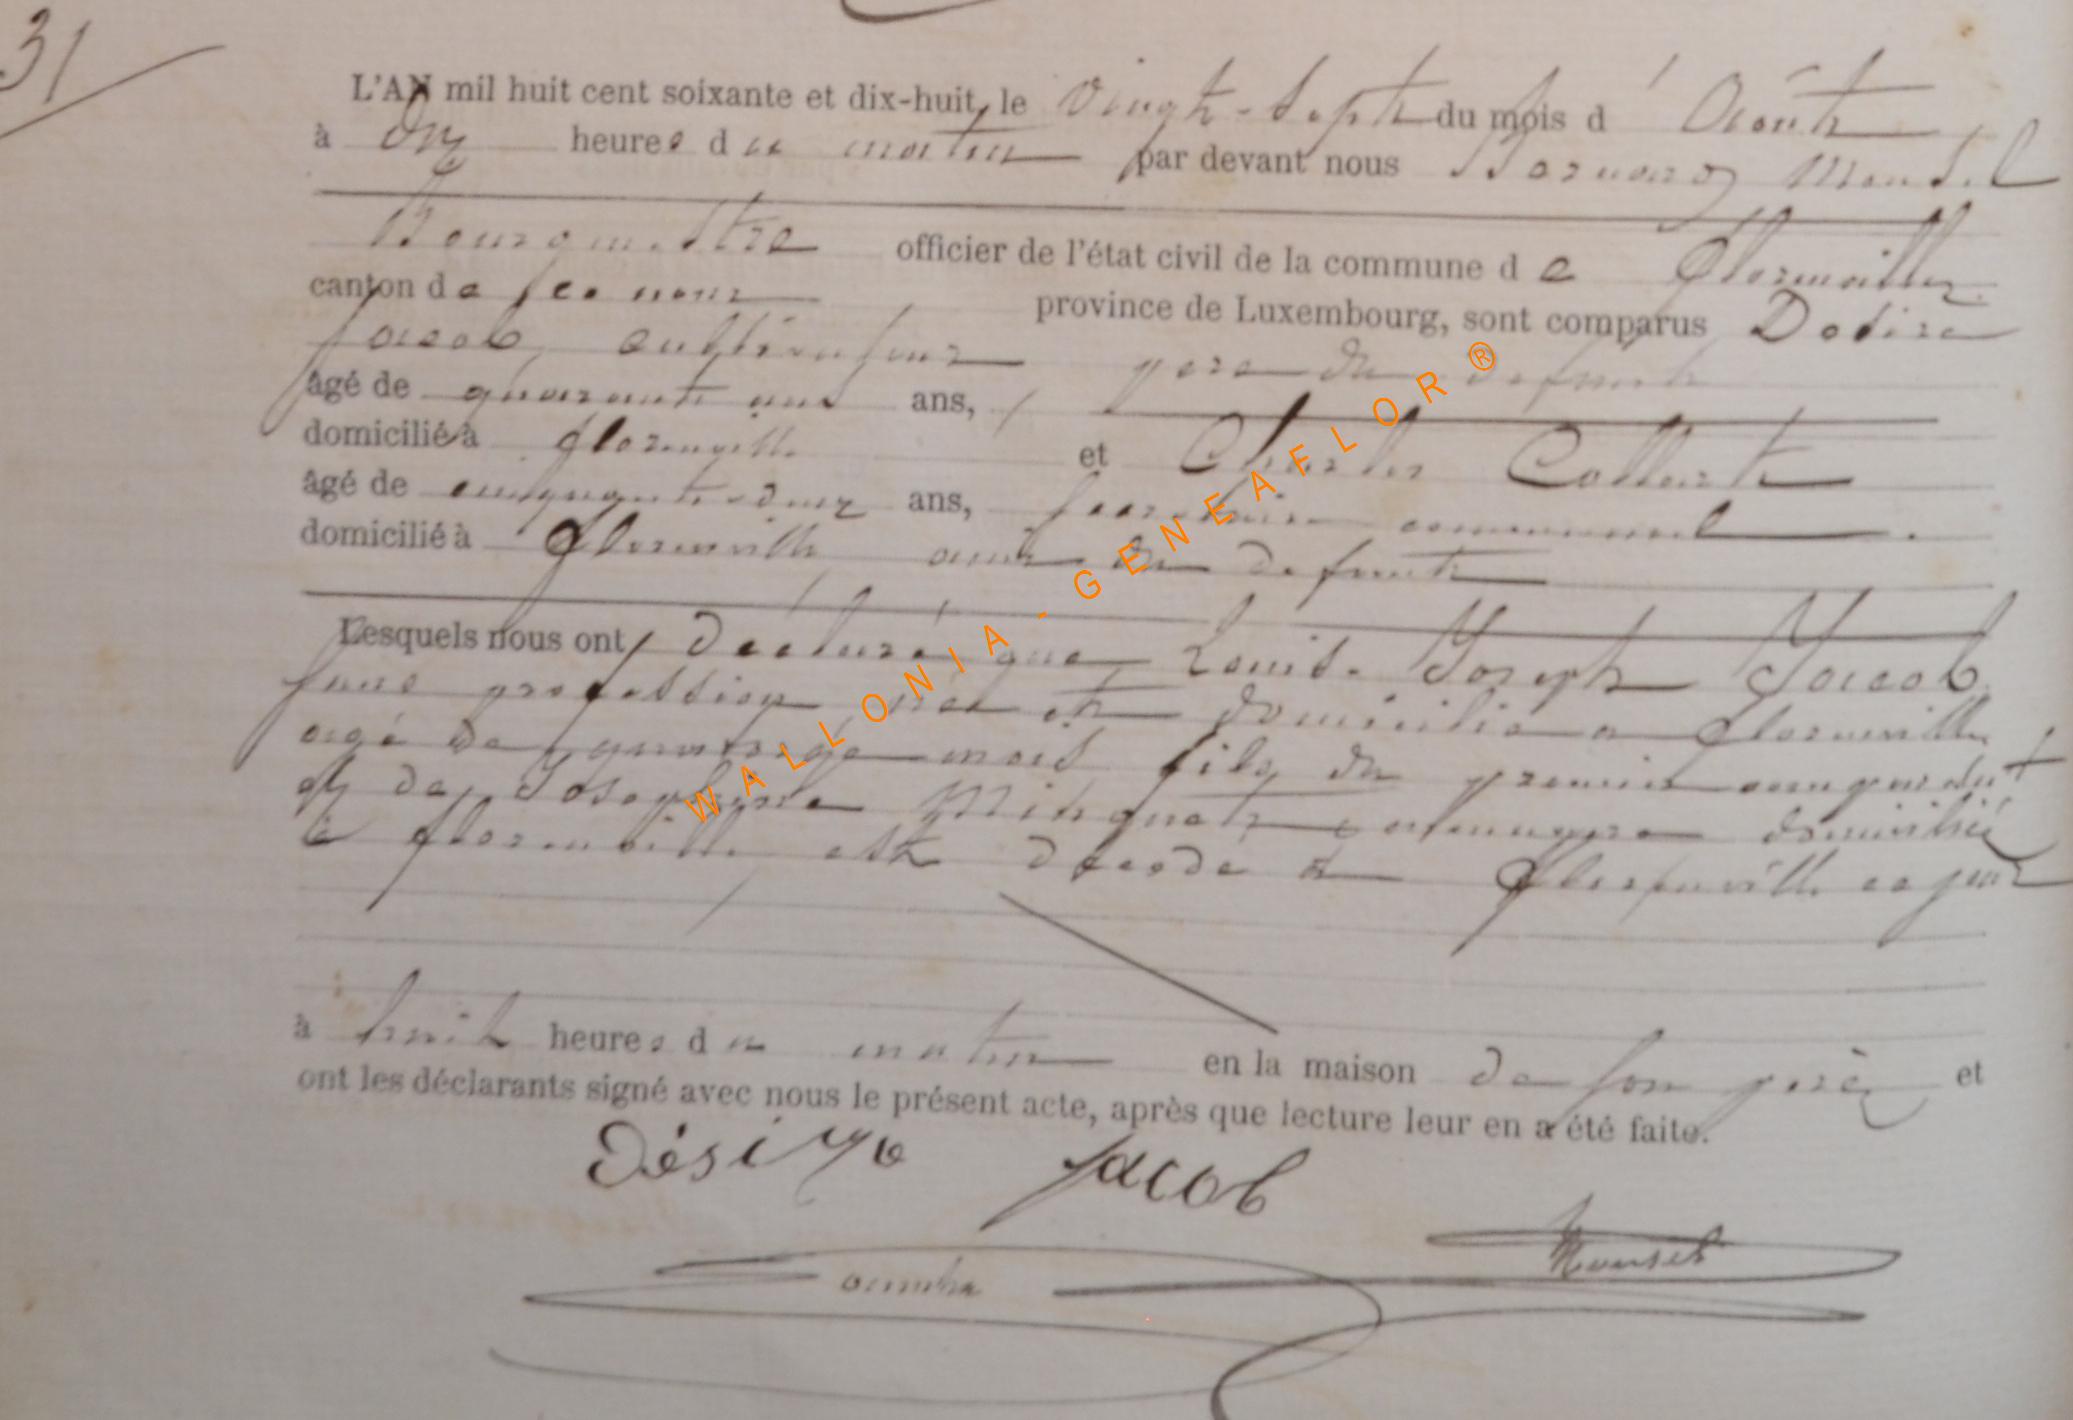 31
L'AN mil huit cent soixante et dix-huit, le Vingt-Sept du mois d' Août
à Dix heures du matin par devant nous Bernard Mansel
Bourgmestre officier de l'état civil de la commune de Florenville
canton de province de Luxembourg, sont comparus Désiré
Jacob, cultivateur père du défunt
âgé de quarante ans, domicilié à Florenville et Charles Collart
âgé de cinquante-deux ans, Secrétaire communal
domicilié à Florenville ami du défunt
Lesquels nous ont déclaré que Louis Joseph Jacob
sans profession, né et domicilié à Florenville
agé de mois fils du premier comparant
et de Josephine Minquet domiciliée
à Florenville est décédé à Florenville ce jour
à huit heures du matin en la maison de son père et
ont les déclarants signé avec nous le présent acte, après que lecture leur en a été faite.
Désiré Jacob
Mansel
WALLONIA - GENEAFLOR ®